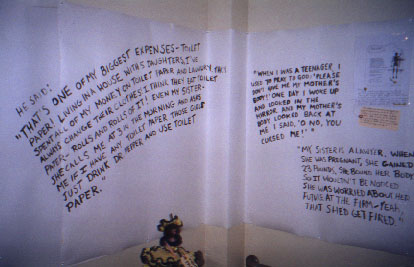 HE SAID:
"THAT'S ONE OF MY BIGGEST EXPENSES - TOILET
PAPER. LIVING IN A HOUSE WITH 5 DAUGHTERS, I'VE
SPENT ALL OF MY MONEY ON TOILET PAPER AND LAUNDRY. THEY
ALWAYS CHANGE THEIR CLOTHES. I THINK THEY EAT TOILET
PAPER - ROLLS AND ROLLS OF IT! EVEN MY SISTER -
SHE CALLS ME AT 3 IN THE MORNING AND ASKS
ME IF I HAVE ANY TOILET PAPER. THOSE GIRLS
JUST DRINK DR. PEPPER AND USE TOILET
PAPER.
"WHEN I WAS A TEENAGER I
USED TO PRAY TO GOD: 'PLEASE
DON'T GIVE ME MY MOTHER'S
BODY!' ONE DAY I WOKE UP
AND LOOKED IN THE
MIRROR AND MY MOTHER'S
BODY LOOKED BACK AT
ME. I SAID, 'O NO, YOU
CURSED ME!'"
"MY SISTER IS A LAWYER. WHEN
SHE WAS PREGNANT, SHE GAINED
23 POUNDS, SHE BOUND HER BODY
SO IT WOULDN'T BE NOTICED.
SHE WAS WORRIED ABOUT HER
FUTURE AT THE FIRM -
THAT SHE'D GET FIRED."